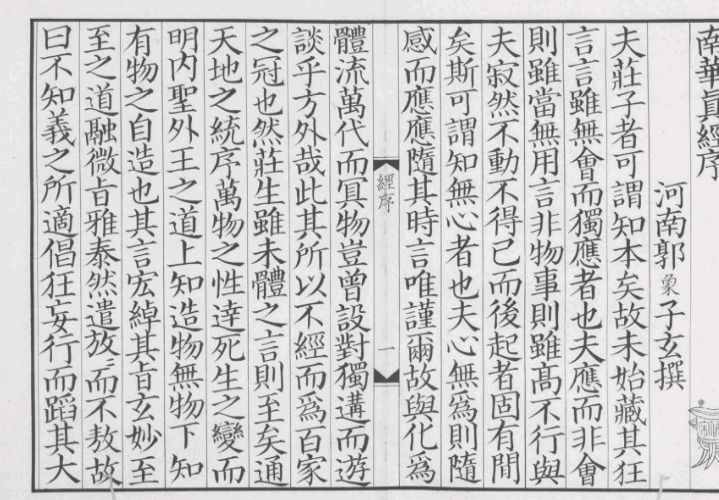 南華真經序
河南郭象子玄撰
夫莊子者可謂知本矣故未始藏其狂
言言雖無會而獨應者也夫應而非會
則雖當無用言非物事則雖高不行與
夫寂然不動不得已而後起者固有間
矣斯可謂知無心者也夫心無為則隨
感而應應隨其時言唯謹爾故與化為
經序
一
體流萬代而冥物豈曾設對獨遘而遊
談乎方外哉此其所以不經而為百家
之冠也然莊生雖未體之言則至矣通
天地之統序萬物之性達死生之變而
明內聖外王之道上知造物無物下知
有物之自造也其言宏綽其旨玄妙至
至之道融微旨雅泰然遣放而不敖故
曰不知義之所適倡狂妄行而蹈其大